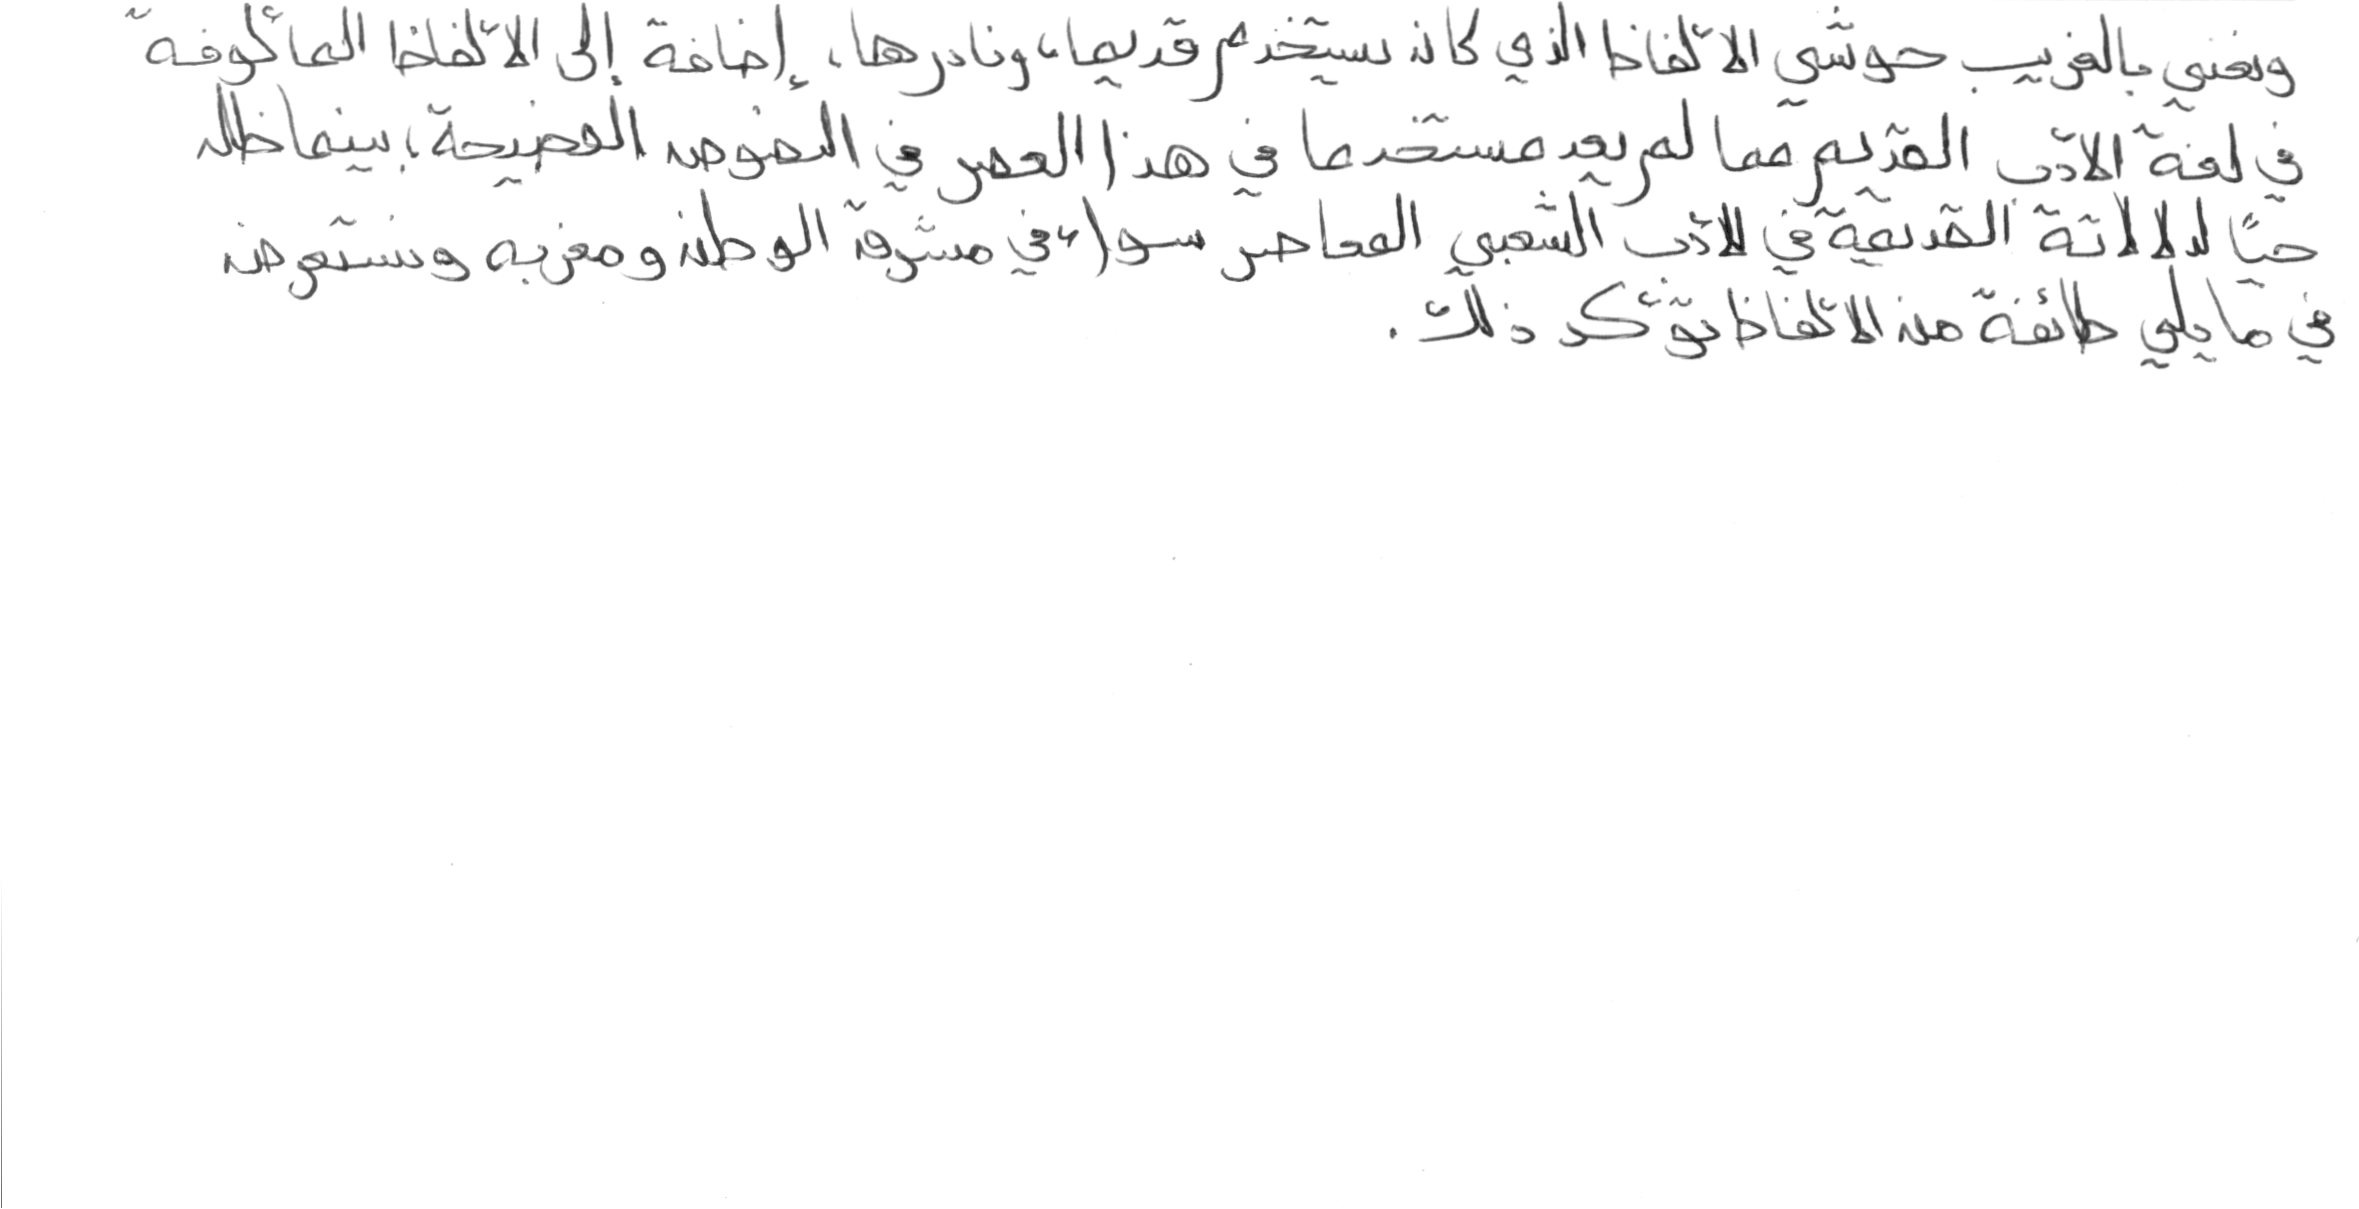 ونعني بالغريب حوشي الألفاظ الذي كان يستخدم قديما، ونادرها، إضافة إلى الألفاظ المألوفة
في لغة الأدب القديم مما لم يعد مستخدما في هذا العصر في النصوص الفصيحة، بينما ظل
حيًا لدلالاتة القديمة في الأدب الشعبي المعاصر سواء في مشرق الوطن ومغربه ونستعرض
في ما يلي طائفة من الألفاظ تؤكد ذلك.